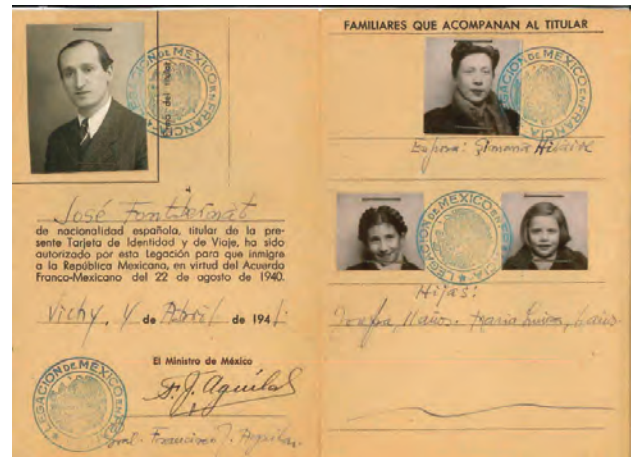 LEGACION DE MEXICO EN FRANCIA
José Fontbernat
de nacionalidad española, titular de la pre-
sente Tarjeta de Identidad y de Viaje, ha sido
autorizado por esta Legación para que inmigre
a la República Mexicana, en virtud del Acuerdo
Franco-Mexicano del 22 de agosto de 1940.
Vichy, 4 de Abril de 1941.
El Ministro de México
F. J. Aguilar
LEGACION DE MEXICO
Gral. Francisco J. Aguilar.
FAMILIARES QUE ACOMPANAN AL TITULAR
LEGACION DE MEXICO EN FRANCIA
Esposa: Simona
LEGACION DE MEXICO EN FRANCIA
Hijas:
Josefa, 11 años. Maria Luisa, 6 años.